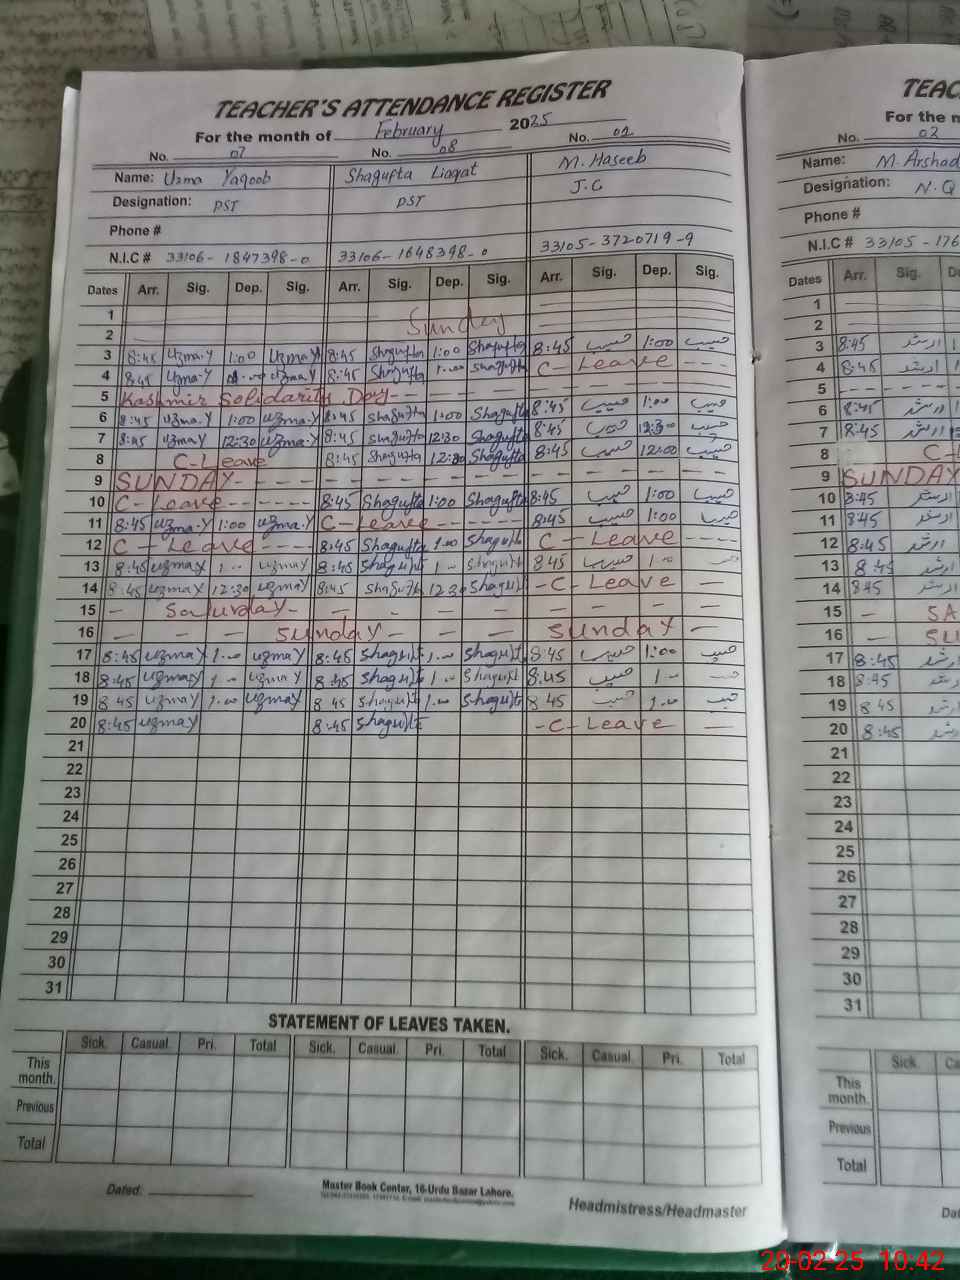 TEACHER'S ATTENDANCE REGISTER
For the month of February 2025
No. 07 No. 08 No. 01
Name: Uzma Yaqoob Shagufta Liaqat M. Haseeb
Designation: PST PST J.C
Phone #
N.I.C # 33106-1847398-0 33106-1648398-0 33105-3720719-9
Dates Arr. Sig. Dep. Sig. Arr. Sig. Dep. Sig. Arr. Sig. Dep. Sig.
1
2 Sunday
3 8:45 Uzma.Y 1:00 Uzma.Y 8:45 Shagufta 1:00 Shagufta 8:45 حسیب 1:00 حسیب
4 8:45 Uzma.Y Uzma.Y 8:45 Shagufta 1.00 Shagufta C-Leave
5 Kashmir Solidarity Day
6 8:45 Uzma.Y 1:00 Uzma.Y 8:45 Shagufta 1:00 Shagufta 8:45 حسیب 1:00 حسیب
7 8:45 Uzma.Y 12:30 Uzma.Y 8:45 Shagufta 12:30 Shagufta 8:45 حسیب 12:30 حسیب
8 C-Leave 8:45 Shagufta 12:00 Shagufta 8:45 حسیب 12:00 حسیب
9 SUNDAY
10 C-Leave 8:45 Shagufta 1:00 Shagufta 8:45 حسیب 1:00 حسیب
11 8:45 Uzma.Y 1:00 Uzma.Y C-Leave 8:45 حسیب 1:00 حسیب
12 C-Leave 8:45 Shagufta 1.00 Shagufta C-Leave
13 8:45 Uzma Y 1.00 Uzma Y 8:45 Shagufta 1.00 Shagufta 8 45 حسیب 1.00
14 8:45 Uzma Y 12:30 Uzma Y 8:45 Shagufta 12 30 Shagufta -C-Leave
15 Saturday
16 Sunday Sunday
17 8:45 Uzma Y 1.00 Uzma Y 8:45 Shagufta 1.00 Shagufta 8:45 حسیب 1:00 حسیب
18 8:45 Uzma Y 1.00 Uzma Y 8:45 Shagufta 1.00 Shagufta 8:45 حسیب 1.00
19 8 45 Uzma Y 1.00 Uzma Y 8 45 Shagufta 1.00 Shagufta 8 45 حسیب 1.00 حسیب
20 8:45 Uzma Y 8:45 Shagufta -C-Leave
21
22
23
24
25
26
27
28
29
30
31
STATEMENT OF LEAVES TAKEN.
Sick. Casual. Pri. Total Sick. Casual. Pri. Total Sick. Casual. Pri. Total
This month.
Previous
Total
Dated:
Master Book Center, 16-Urdu Bazar Lahore.
Headmistress/Headmaster
TEAC
For the m
No. 02
Name: M. Arshad
Designation: N.Q
Phone #
N.I.C # 33105-176
Dates Arr. Sig.
1
2
3 8:45 ارشد
4 8:45 ارشد
5
6 8:45 ارشد
7 8:45 ارشد
8 C-L
9 SUNDAY
10 8:45 ارشد
11 8:45 ارشد
12 8:45 ارشد
13 8:45 ارشد
14 8:45 ارشد
15 SA
16 SU
17 8:45 ارشد
18 8:45 ارشد
19 8 45 ارشد
20 8:45 ارشد
21
22
23
24
25
26
27
28
29
30
31
Sick. Ca
This month.
Previous
Total
Dat
20-02-25 10:42